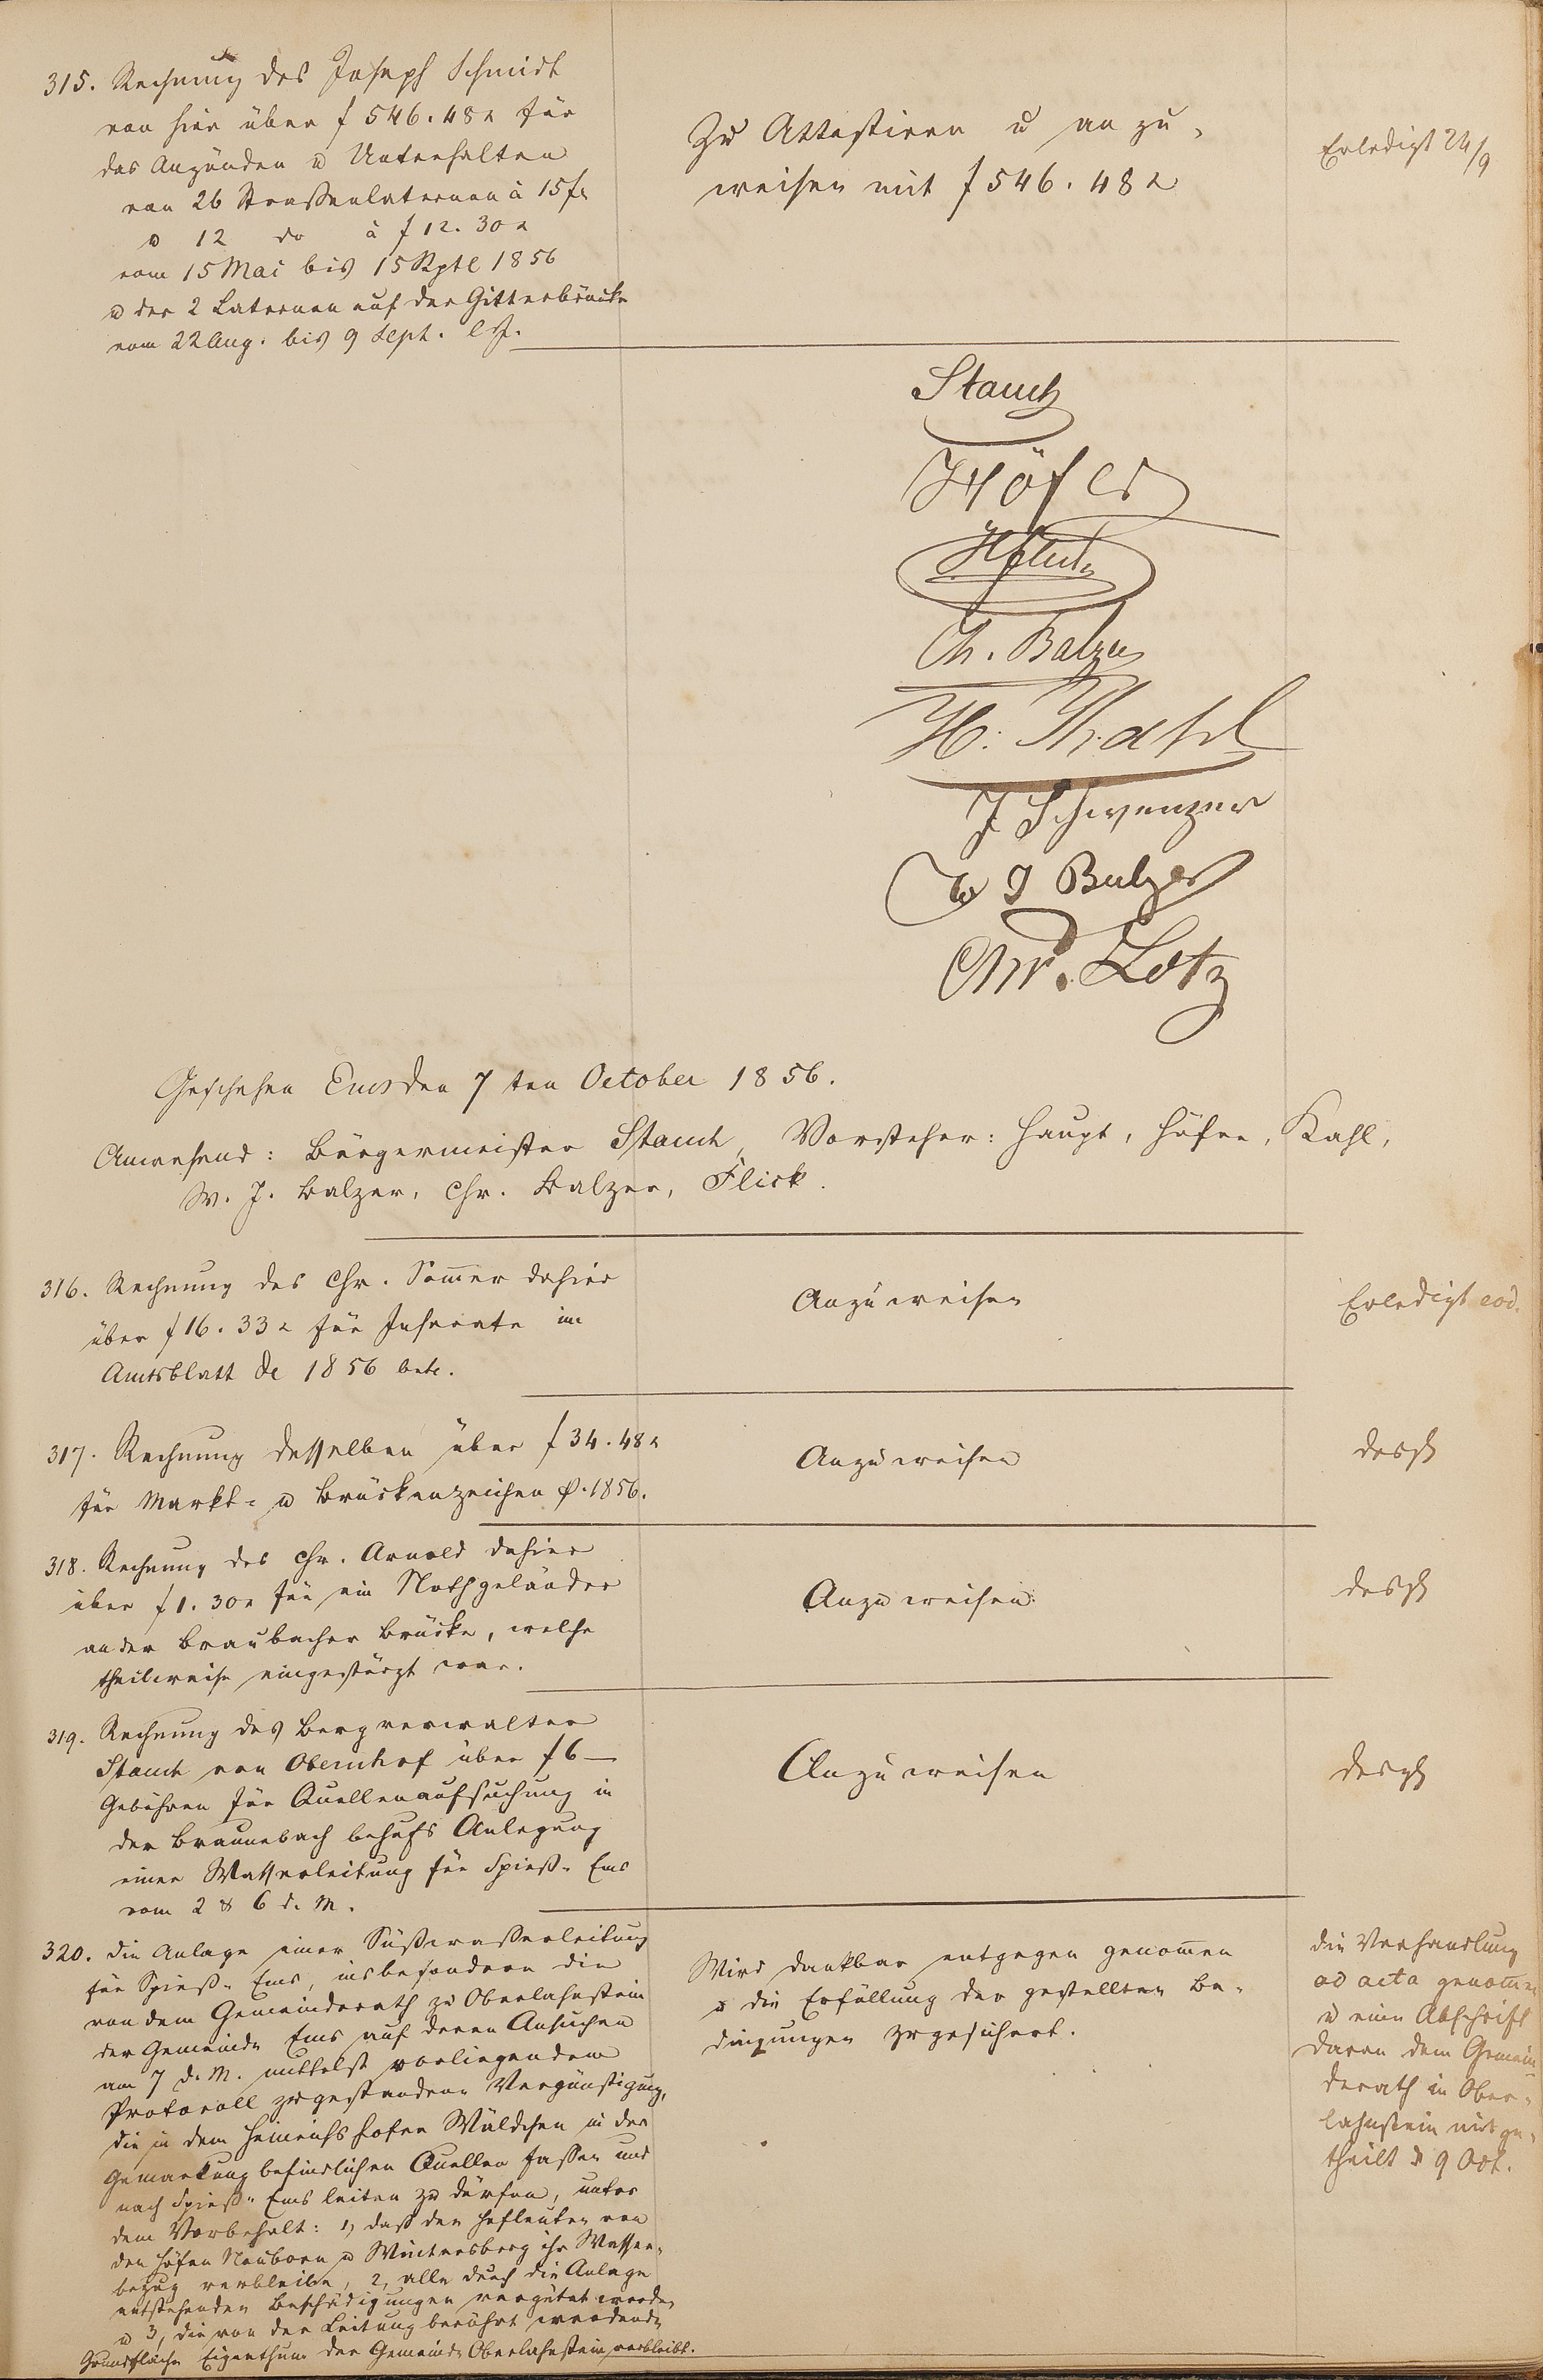 315. Rechnung des Joseph Schmidt
von hier über f 546. 48 x für
das Anzünden u Unterhalten
von 26 Strassenlaternen à 15 f
u 12 do à f 12. 30 x
vom 15 Mai bis 15 Sptb 1856
u der 2 Laternen auf der Gitterbrücke
vom 22 Aug. bis 9 Sept. l. J.
Zu Attestiren u anzu-
weisen mit f 546. 48 x
Erledigt 24/9
Stauch
Höfer
Ch. Balzer
H. Kahl
J Schwenzer
W J Balzer
Chr. Lotz
Geschehen Ems den 7ten October 1856.
Anwesend: Bürgermeister Stauch, Vorsteher: Haupt, Höfer, Kahl,
W. J. Balzer, Chr. Balzer, Flick.
316. Rechnung des Chr. Sommer dahier
über f 16. 33 x für Inserate im
Amtsblatt de 1856 betr.
Anzuweisen
Erledigt eod.
317. Rechnung desselben über f 34. 48 x
für Markt- u Brückenzeichen p. 1856.
Anzuweisen
desgl
318. Rechnung des Chr. Arnold dahier
über f 1. 30 x für ein Nothgeländer
an der Braubacher Brücke, welche
theilweise eingestürzt war.
Anzuweisen
desgl
319. Rechnung des Bergverwalter
Stauch von Obernhof über f 6 —
Gebühren für Quellenaufsuchung in
der Braunebach behufs Anlegung
einer Wasserleitung für Spieß-Ems
vom 2 & 6 d. M.
Anzuweisen
desgl
320. Die Anlage einer Süßwasserleitung
für Spieß-Ems, insbesondere die
von dem Gemeinderath zu Oberlahnstein
der Gemeinde Ems auf deren Ansuchen
am 7 d. M. mittelst vorliegendem
Protocoll zugestandene Vergünstigung,
die in dem Heinrichs hofer Wäldchen in der
Gemarkung befindlichen Quellen fassen und
nach Spieß-Ems leiten zu dürfen, unter
dem Vorbehalt: 1, daß den Hofleuten von
den Höfen Neuborn u Wintersberg ihr Wasser-
bezug verbleibe, 2, alle durch die Anlage
entstehenden Beschädigungen vergütet werden
u 3, die von der Leitung berührt werdende
Grundfläche Eigenthum der Gemeinde Oberlahnstein verbleibt.
Wird dankbar entgegen genommen
u die Erfüllung der gestellten Be-
dingungen zugesichert.
Die Verhandlung
ad acta genommen
u eine Abschrift
davon dem Gemein
derath in Ober-
lahnstein mitge-
theilt d 9 Oct.